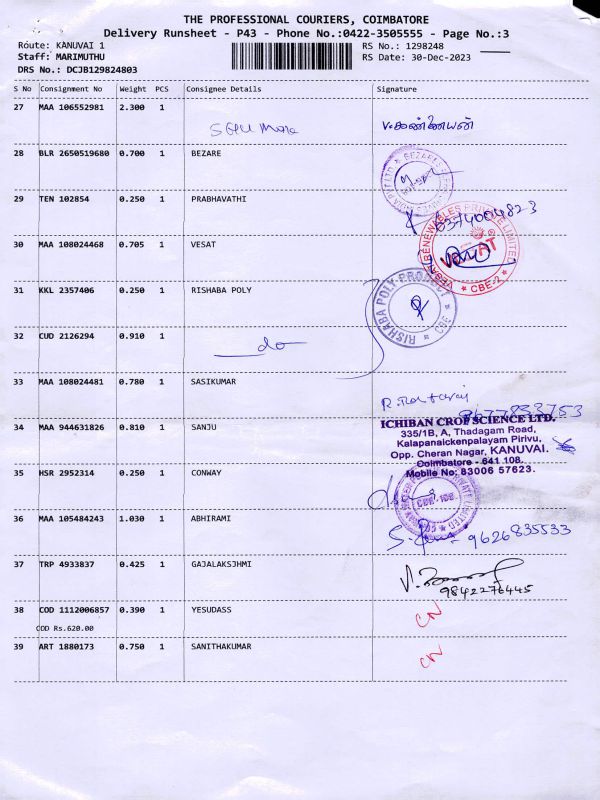 THE PROFESSIONAL COURIERS, COIMBATORE
Delivery Runsheet - P43 - Phone No.:0422-3505555 - Page No.:3
Route: KANUVAI 1
RS No.: 1298248
Staff: MARIMUTHU
RS Date: 30-Dec-2023
DRS No.: DCJB129824803
S No Consignment No Weight PCS Consignee Details Signature
27 MAA 106552981 2.300 1
28 BLR 2650519680 0.700 1 BEZARE
29 TEN 102854 0.250 1 PRABHAVATHI
6374004823
30 MAA 108024468 0.705 1 VESAT
VESAT RENEWABLES PRIVATE LIMITED
* CBE-2 *
31 KKL 2357406 0.250 1 RISHABA POLY
RISHABA POLY PRODUCT
32 CUD 2126294 0.910 1 do
33 MAA 108024481 0.780 1 SASIKUMAR
9677853753
34 MAA 944631826 0.810 1 SANJU
ICHIBAN CROP SCIENCE LTD.
335/1B, A, Thadagam Road,
Kalapanaickenpalayam Pirivu,
Opp. Cheran Nagar, KANUVAI.
Coimbatore - 641 108.
Mobile No: 83006 57623.
35 HSR 2952314 0.250 1 CONWAY
36 MAA 105484243 1.030 1 ABHIRAMI
9626835533
37 TRP 4933837 0.425 1 GAJALAKSJHMI
9842276445
38 COD 1112006857 0.390 1 YESUDASS
CN
COD Rs.620.00
39 ART 1880173 0.750 1 SANITHAKUMAR
CN